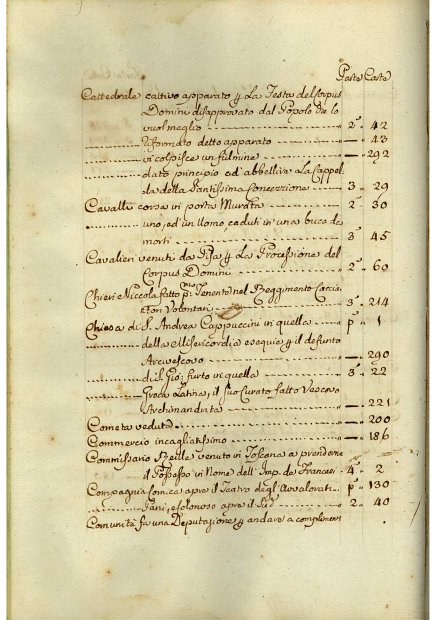 Parte Carte
Cattedrale cattivo apparato p La Festa del Corpus
Domini disapprovato dal Popolo che lo
vuol meglio 2ª 42
riformato detto apparato 43
vi colpisce un fulmine 292
dato principio ad abbellire La Cappel
la della Santissima Concezzione 3ª 29
Cavalli corsa in porta Murata 2ª 30
uno, ed un Uomo caduti in una buca da
morti 3ª 45
Cavalieri venuti da Pisa p La Processione del
Corpus Domini 2ª 60
Chieri Niccola fatto pmo Tenente nel Reggimento Caccia
tori Volontari 3ª 214
Chiesa di S. Andrea Cappuccini in quella pª 1
della Misericordia esequie p il defunto
Arcivescovo 290
di S. Gio furto in quella 3ª 22
Greca Latina, il suo Curato fatto Vescovo
Archimandrita 221
Cometa veduta 200
Commercio incagliatissimo 186
Commissario venuto in Toscana a prendere
il Possesso in Nome dell' Imp. de Francesi 4ª 2
Compagnia Comica apre il Teatro degl' Avvalorati pª 130
Pani, e apre il Suo 2ª 40
Comunità fa una Deputazione p andare a compliment